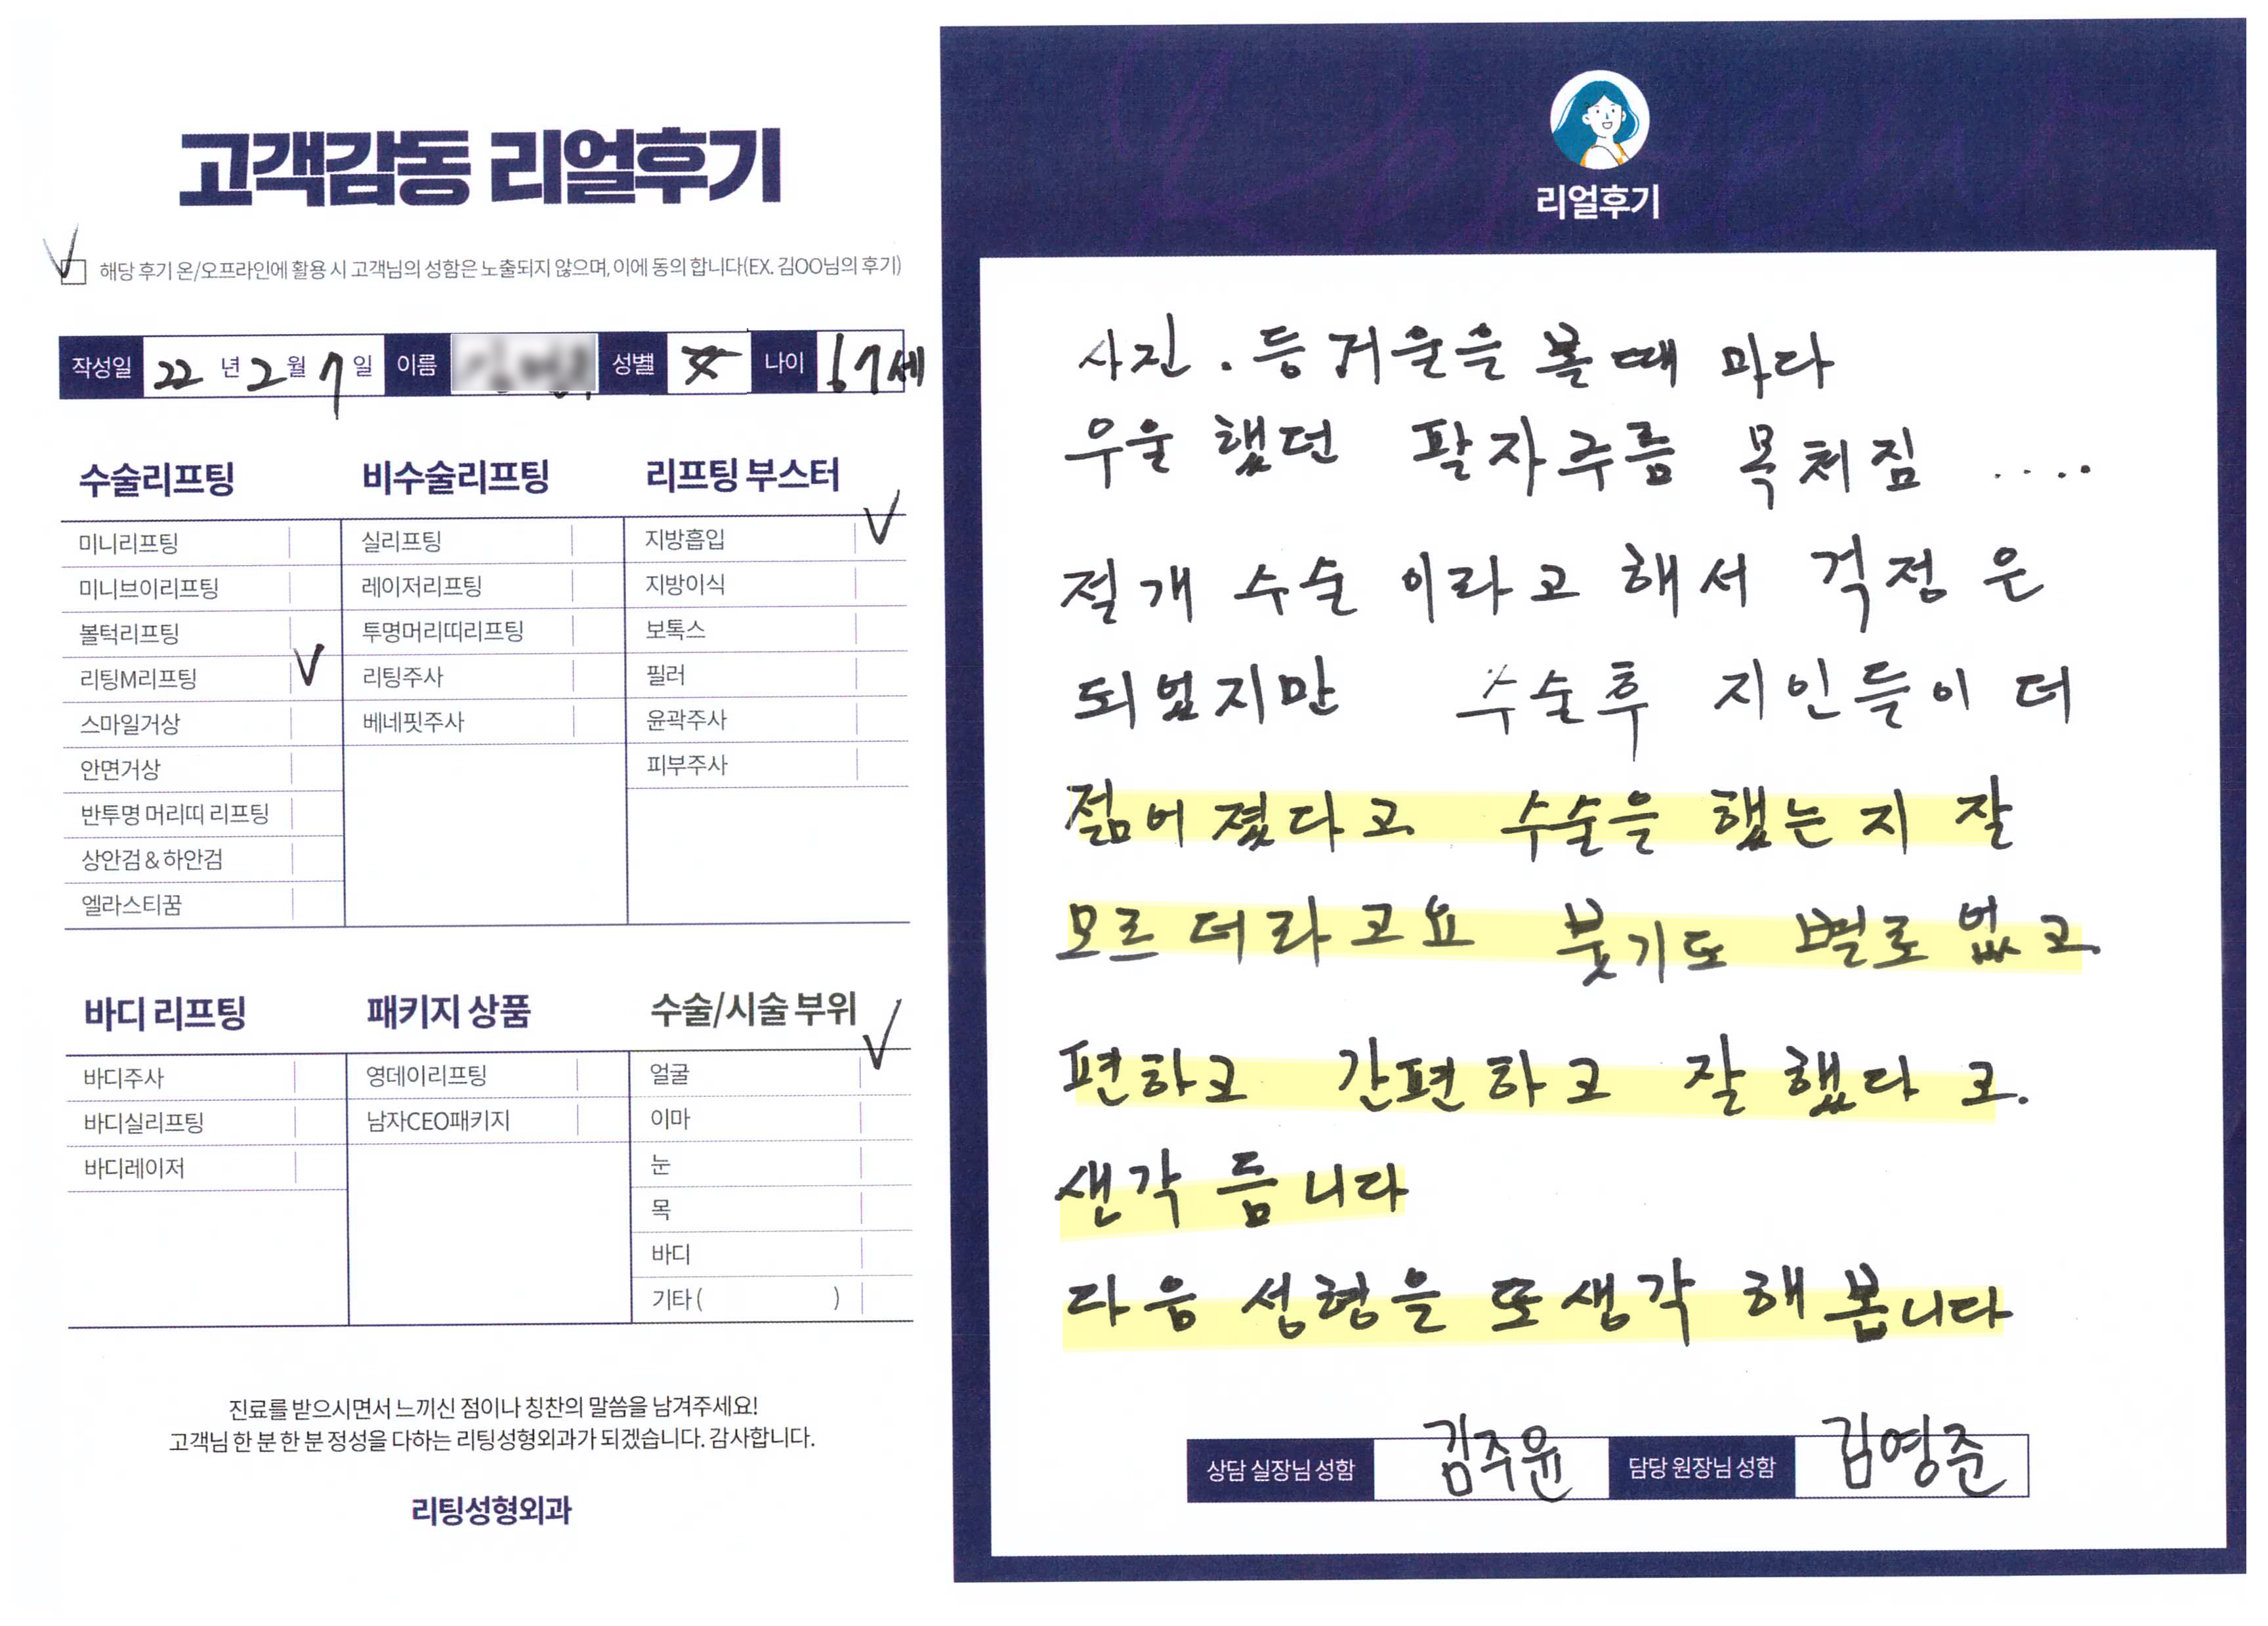 고객감동 리얼후기
해당 후기 온/오프라인에 활용 시 고객님의 성함은 노출되지 않으며, 이에 동의 합니다(EX. 김OO님의 후기)
작성일 22 년 2 월 7 일 이름 성별 여 나이 67세
수술리프팅
미니리프팅
미니브이리프팅
볼턱리프팅
리팅M리프팅
스마일거상
안면거상
반투명 머리띠 리프팅
상안검 & 하안검
엘라스티꿈
비수술리프팅
실리프팅
레이저리프팅
투명머리띠리프팅
리팅주사
베네핏주사
리프팅 부스터
지방흡입
지방이식
보톡스
필러
윤곽주사
피부주사
바디 리프팅
바디주사
바디실리프팅
바디레이저
패키지 상품
영데이리프팅
남자CEO패키지
수술/시술 부위
얼굴
이마
눈
목
바디
기타 ( )
진료를 받으시면서 느끼신 점이나 칭찬의 말씀을 남겨주세요!
고객님 한 분 한 분 정성을 다하는 리팅성형외과가 되겠습니다. 감사합니다.
리팅성형외과
리얼후기
사진 . 등 거울을 볼때 마다
우울 했던 팔자주름 목처짐 ....
절개 수술 이라고 해서 걱정 은
되었지만 수술후 지인들이 더
젊어 졌다고 수술을 했는지 잘
모르더라고요 붓기도 별로 없고.
편하고 간편하고 잘 했다 고.
생각 듭니다
다음 성형을 또 생각 해 봅니다
상담 실장님 성함 김주윤 담당 원장님 성함 김영준